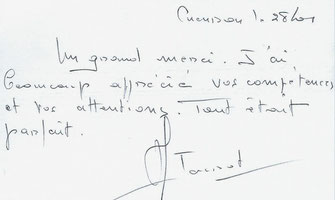 Un grand merci. J'ai
beaucoup apprécié vos compétences
et vos attentions. Tout était
parfait.